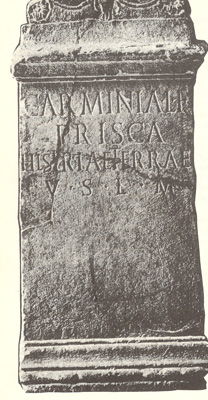 CARMINIA L F
PRISCA
HISTRIAE TERRAE
V · S · L · M